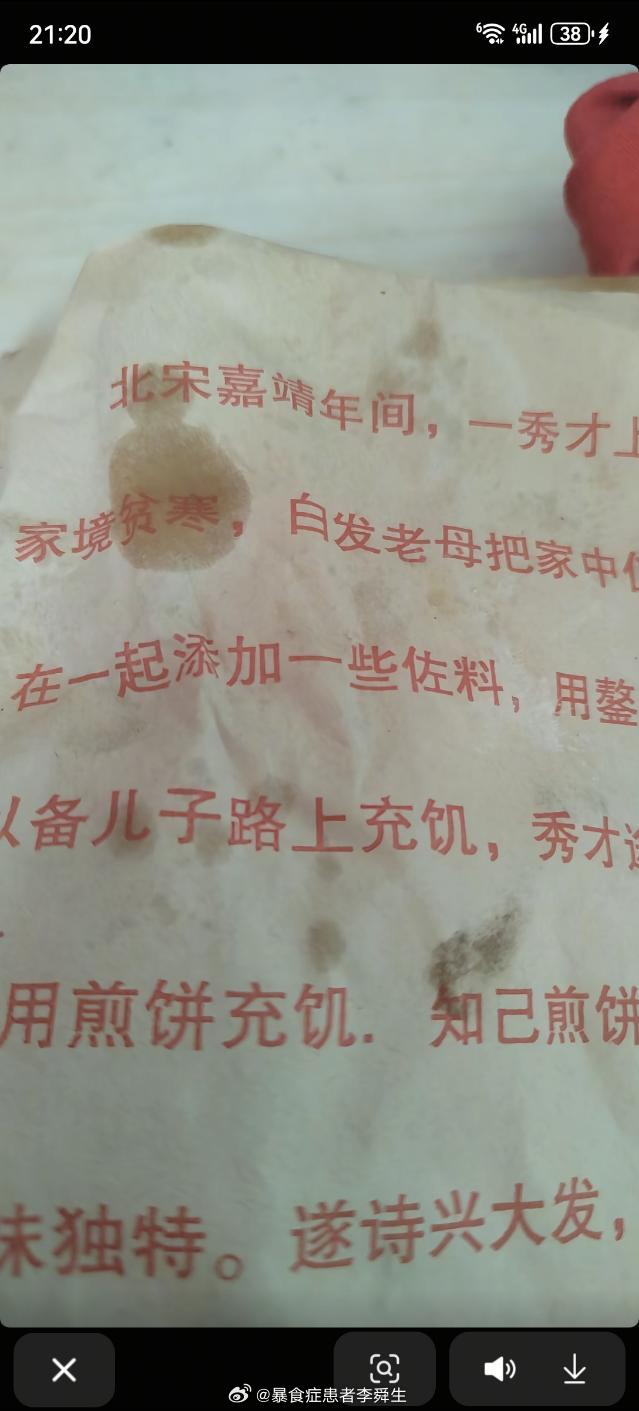 21:20
6 4G 38
北宋嘉靖年间，一秀才上
家境贫寒，白发老母把家中
在一起添加一些佐料，用鏊
以备儿子路上充饥，秀才
用煎饼充饥．知己煎饼
味独特。遂诗兴大发，
@暴食症患者李舜生